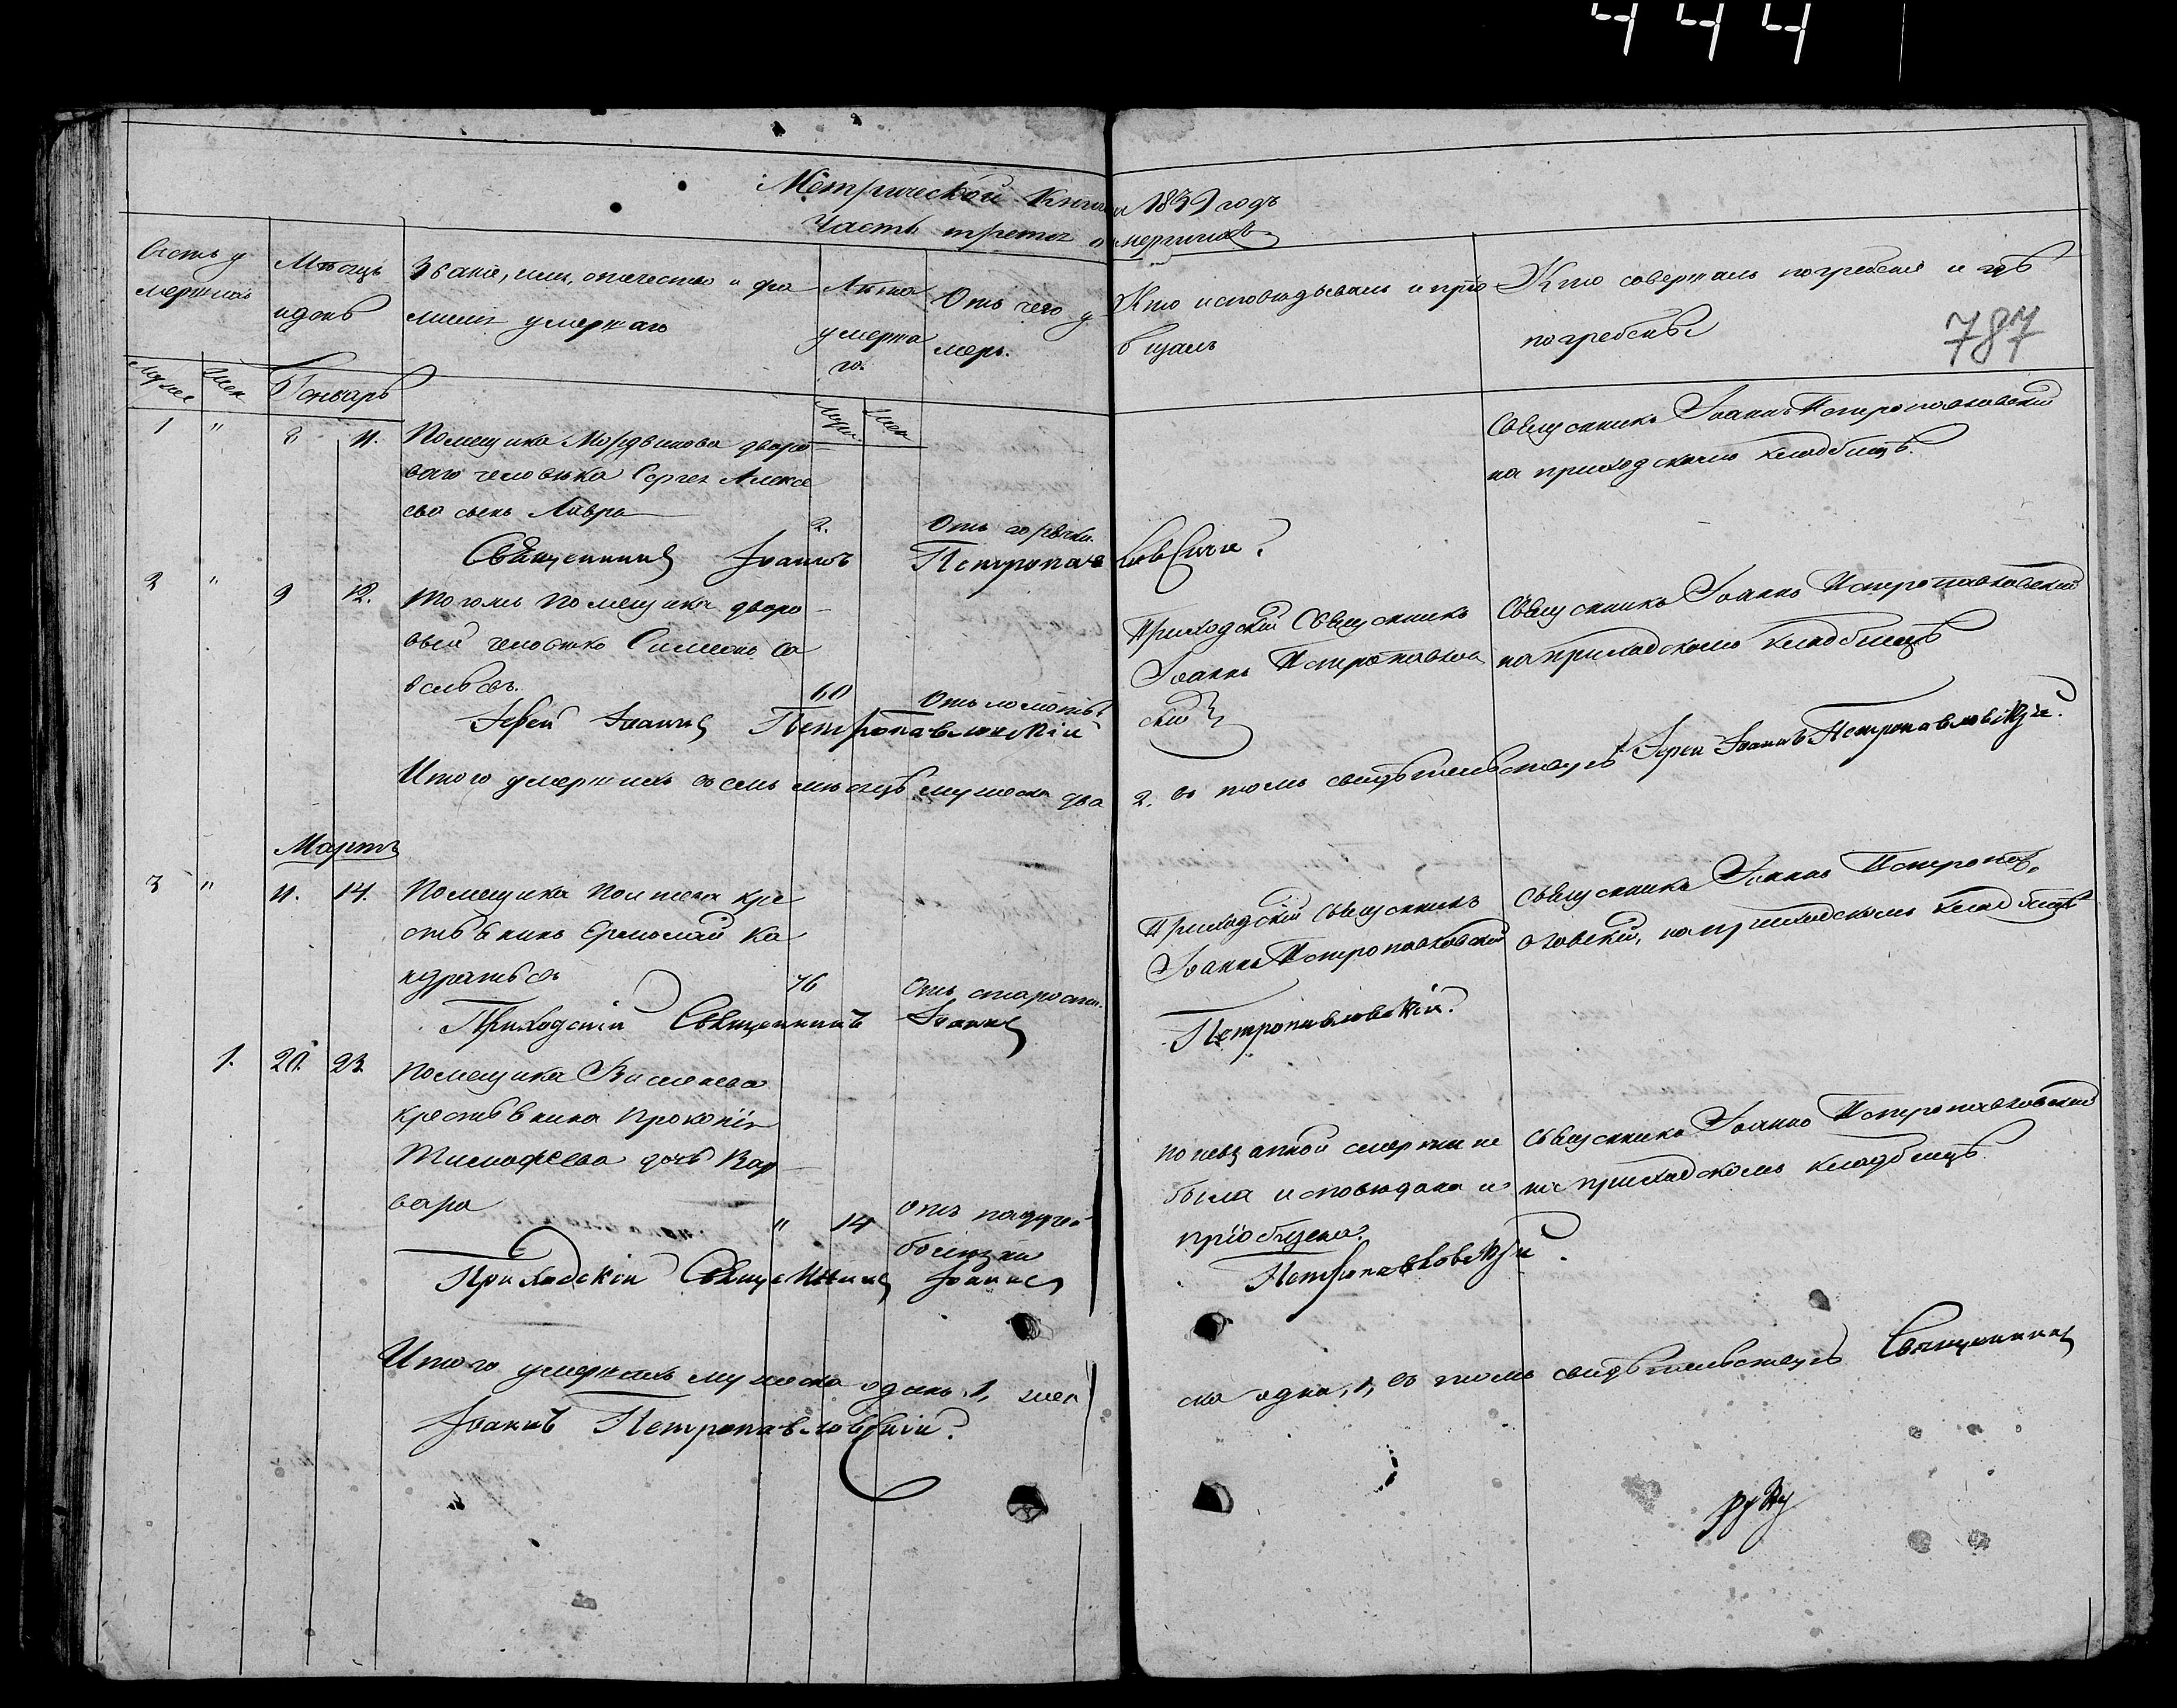 444
Метрической Книги 1839 годъ
Часть третья о умершихъ
787
Счетъ умершихъ
Мѣсяцъ и день
Званіе, имя, отечество и фамилія умершаго
Лѣта умершаго
Отъ чего умеръ.
Кто исповѣдывалъ и пріобщалъ
Кто совершалъ погребеніе и гдѣ погребены
Муж Жен
Генварь
Муж Жен
1 " 8 11. Помещика Мордвинова дворо-
ваго человѣка Сергея Алексе
ева сынъ Лавра 2. Отъ горячки.
Священникъ Іоаннъ Петропавловскій
на приходскомъ кладбищѣ.
Священникъ Іоаннъ Петропавловскій
2 " 9 12. Тогожъ помещика дворо-
вый человѣкъ Симеонъ Са
вельевъ. 60 Отъ ломоты
Приходскій Священникъ
Іоаннъ Петропавлов
скій
Священникъ Іоаннъ Петропавловскій
на приходскомъ кладбищѣ
Іерей Іоаннъ Петропавловскій
Итого умершихъ въ семъ мѣсяцѣ мужеска два 2. въ томъ свидѣтельствуемъ Іерей Іоаннъ Петропавловскій.
Мартъ
3 " 11. 14. Помещика кре
стьянинъ Ермолай Ка
ндратьевъ 76 Отъ старости.
Приходскій Священникъ
Іоаннъ Петропавловскій
Священникъ Іоаннъ Петропав
ловскій, на приходскомъ кладбищѣ
Приходскій Священникъ Іоаннъ Петропавловскій.
1. 20. 23. Помещика
крестьянина Прокопія
Тимофеева дочь Вар-
вара " 14 Отъ падучей
болезни
по невзапной смерти не
была исповѣдана и
пріобщена.
Священникъ Іоаннъ Петропавловскій
на приходскомъ кладбищѣ
Приходскій Священникъ Іоаннъ Петропавловскій.
Итого умершихъ мужеска одинъ 1, женска одна, 1, въ томъ свидѣтельствуемъ Священникъ
Іоаннъ Петропавловскій.
руку